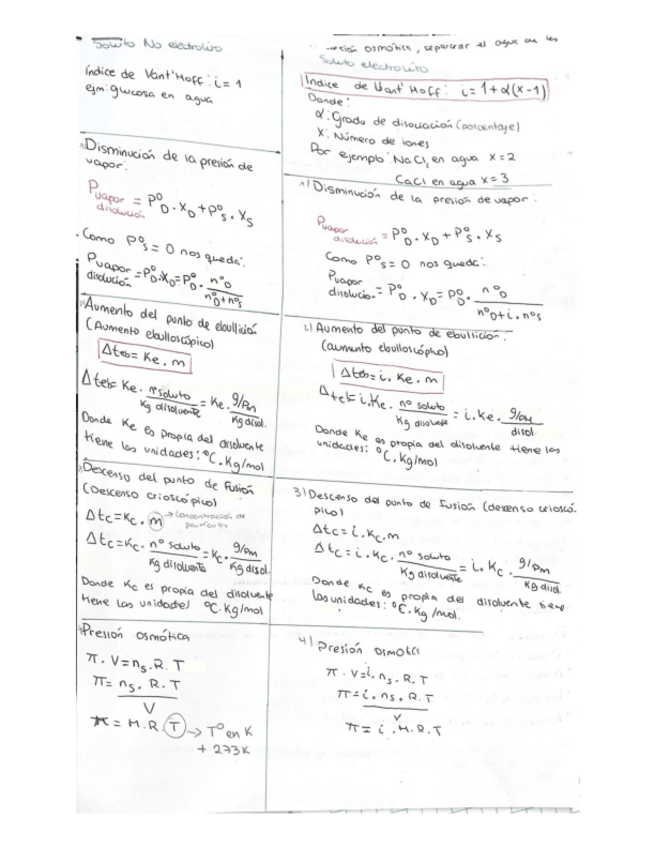 Soluto No electrolito
índice de Vant'Hoff: i = 1
ejm: glucosa en agua
Disminución de la presión de
vapor:
Pvapor disolución = PºD . XD + PºS . XS
. Como PºS = 0 nos queda:
Pvapor disolución = PºD . XD = PºD . nºD / nºD + nºS
Aumento del punto de ebullición
(Aumento ebulloscópico)
Δteb = Ke . m
Δteb = Ke . nº soluto / Kg disolvente = Ke . g/Pm / Kg disol.
Donde Ke es propia del disolvente
tiene las unidades: ºC . Kg/mol
Descenso del punto de fusión
(Descenso crioscópico)
Δtc = Kc . m → concentración de
Δtc = Kc . nº soluto / Kg disolvente = Kc . g/Pm / Kg disol.
Donde Kc es propia del disolvente
tiene las unidades ºC . Kg/mol
Presión osmótica
π . V = ns . R . T
π = ns . R . T / V
π = M . R . T → Tº en K
+ 273K
osmótica, separar el agua de las
Soluto electrolito
Indice de Vant'Hoff: i = 1 + α(x-1)
Donde:
α: Grado de disociación (porcentaje)
X: Número de iones
Por ejemplo: NaCl, en agua x = 2
CaCl en agua x = 3
1) Disminución de la presión de vapor:
Pvapor disolución = PºD . XD + PºS . XS
Como PºS = 0 nos queda:
Pvapor disolución = PºD . XD = PºD . nºD / nºD + i . nºS
2) Aumento del punto de ebullición.
(aumento ebulloscópico)
Δteb = i . Ke . m
Δteb = i . Ke . nº soluto / Kg disolvente = i . Ke . g/PM / disol.
Donde Ke es propia del disolvente tiene las
unidades: ºC . Kg/mol
3) Descenso del punto de fusión (descenso crioscó-
pico)
Δtc = i . Kc . m
Δtc = i . Kc . nº soluto / Kg disolvente = i . Kc . g/Pm / Kg disol
Donde Kc es propia del disolvente tiene
las unidades: ºC . Kg/mol.
4) Presión osmótica
π . V = i . ns . R . T
π = i . ns . R . T / V
π = i . M . R . T